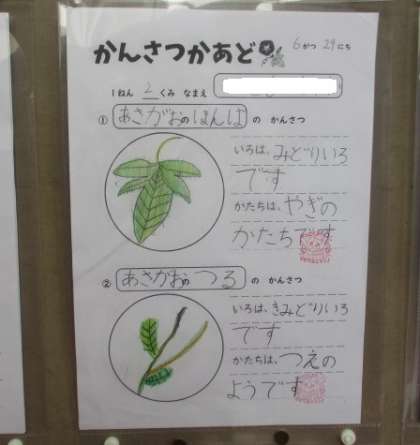 かんさつかあど
6がつ29にち
1ねん 2 くみ なまえ
① あさがおのほんば の かんさつ
いろは、みどりいろ
です
かたちは、やぎの
かたちです
② あさがおのつる の かんさつ
いろは、きみどりいろ
です
かたちは、つえの
ようです